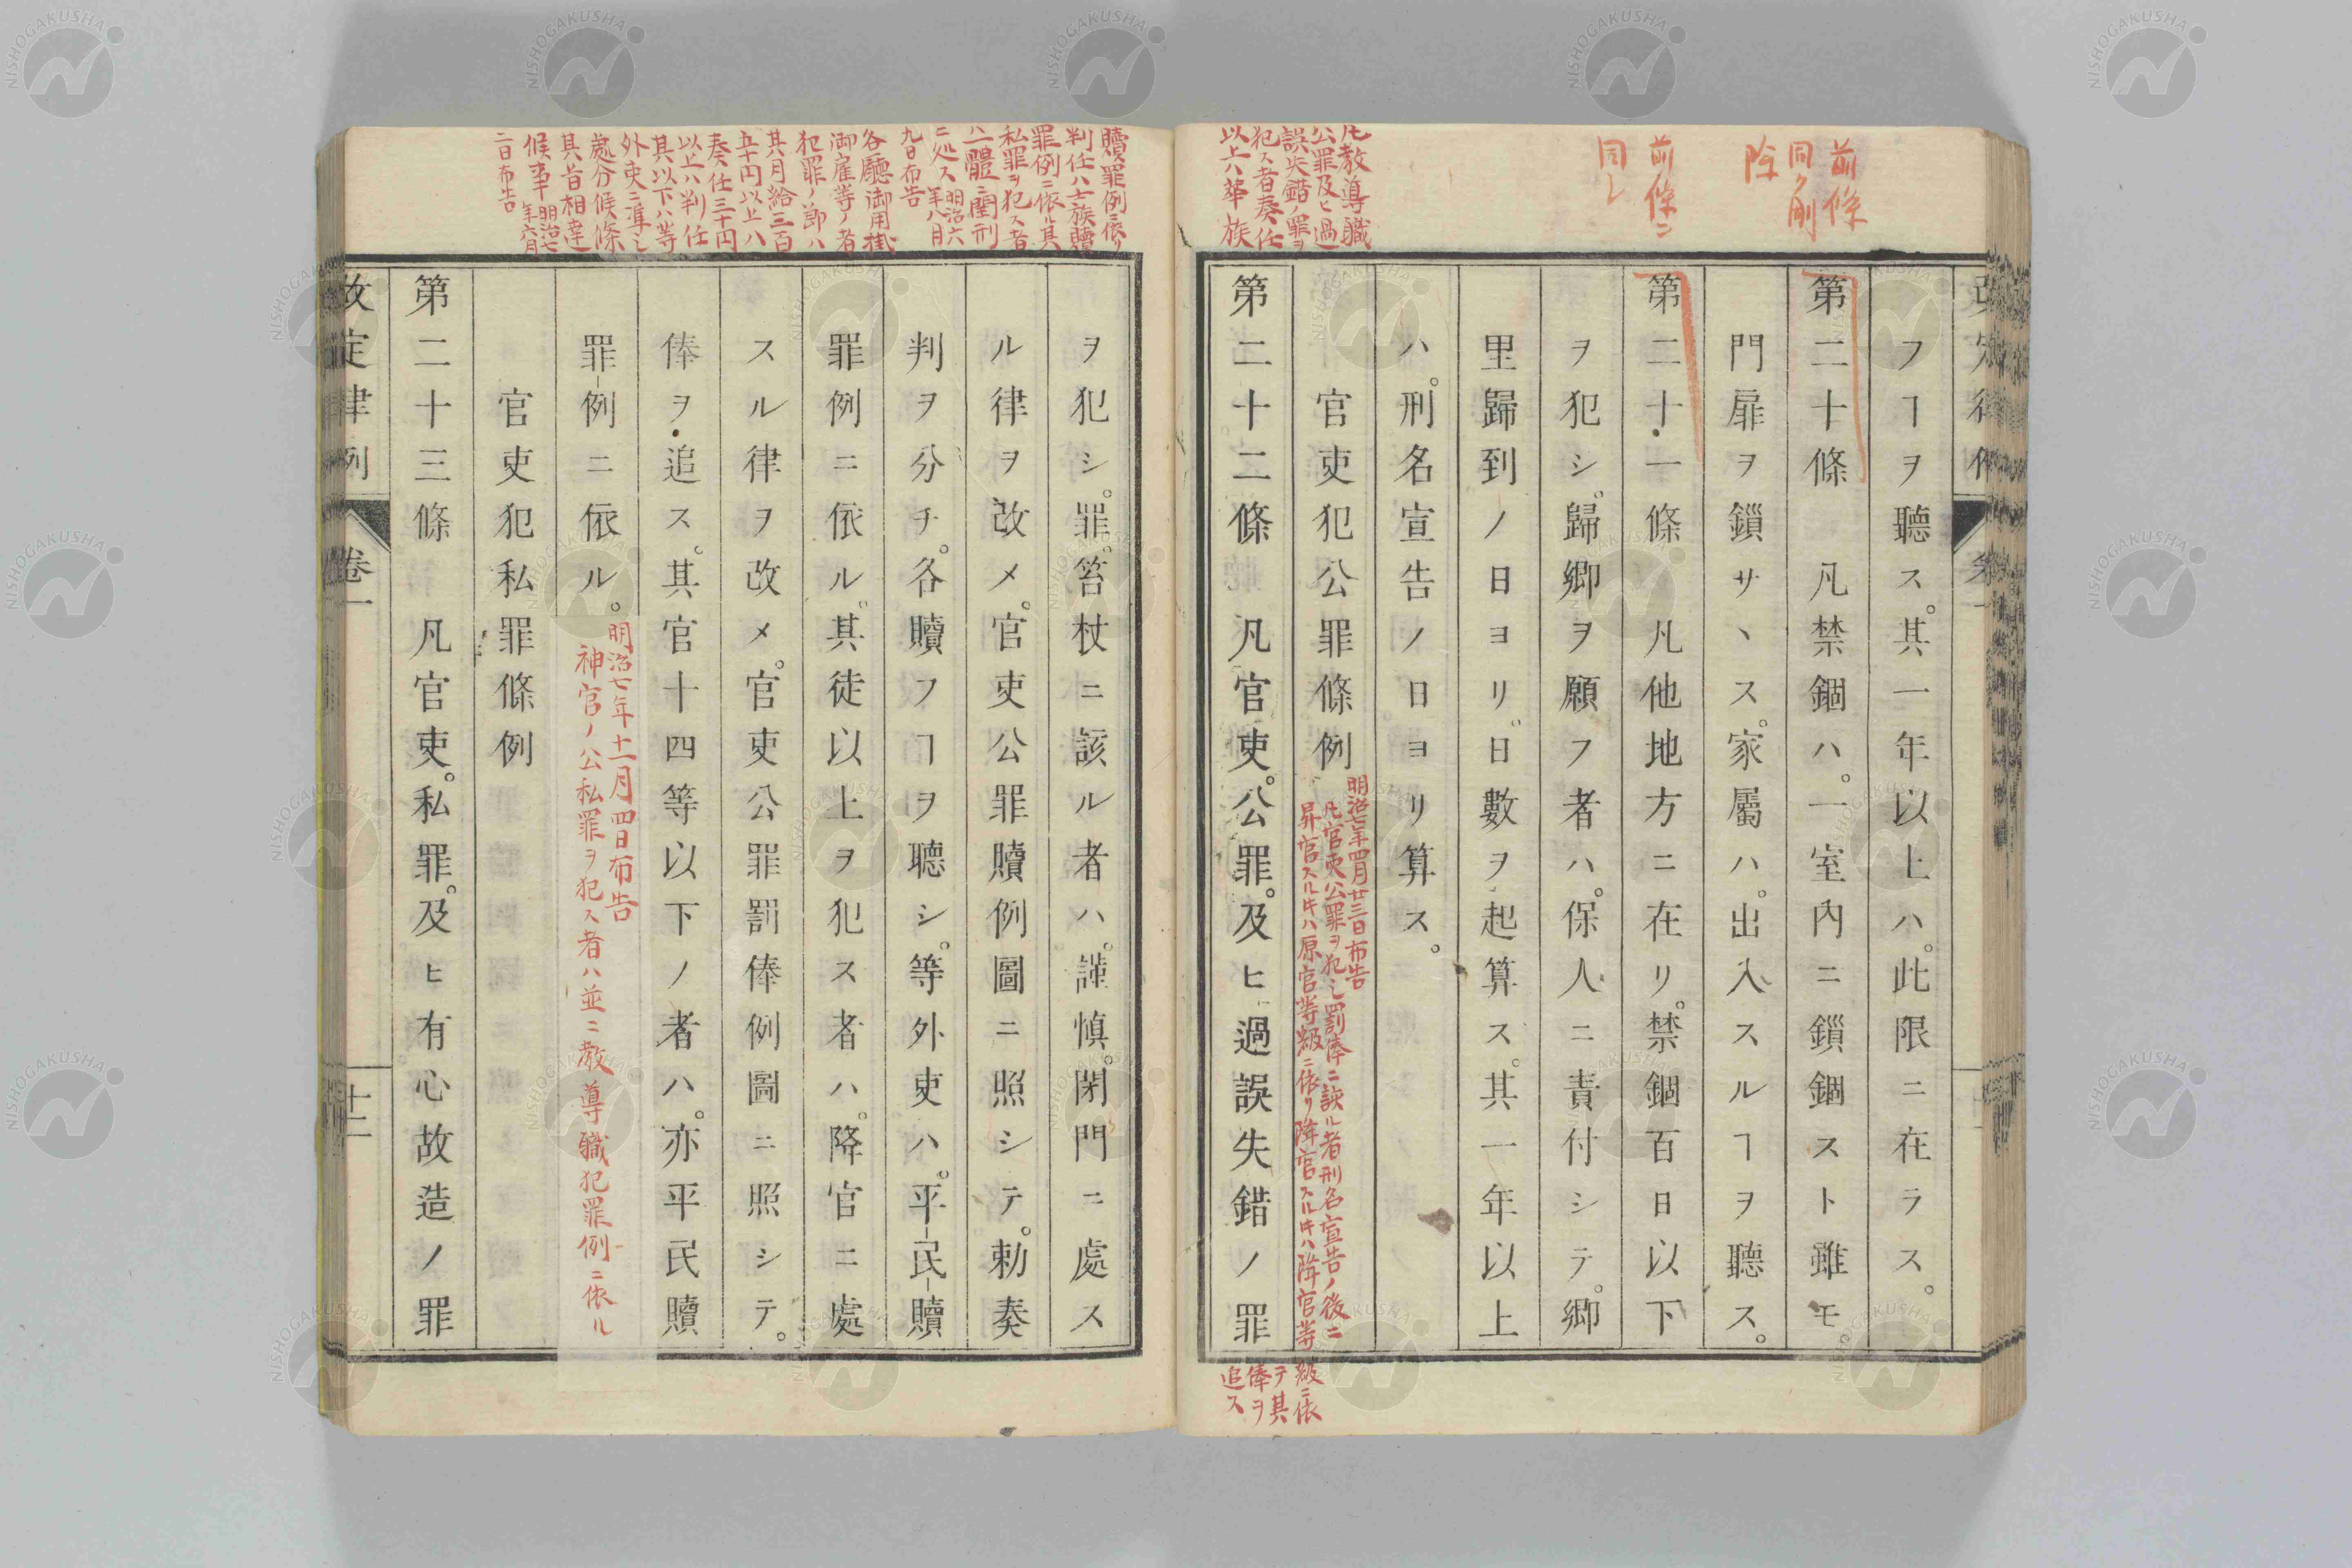 前條
同ク刪
除
前條ニ
同シ
凡教導職
公罪及ヒ過
誤失錯ノ罪ヲ
犯ス者奏任
以上ハ華族
フヿヲ聽ス。其一年以上ハ。此限ニ在ラス。
第二十條　凡禁錮ハ。一室內ニ鎻錮スト雖モ。
門扉ヲ鎻サヽス。家屬ハ。出入スルヿヲ聽ス。
第二十一條　凡他地方ニ在リ。禁錮百日以下
ヲ犯シ。歸鄕ヲ願フ者ハ。保人ニ責付シテ。鄕
里歸到ノ日ヨリ。日數ヲ起算ス。其一年以上
ハ。刑名宣告ノ日ヨリ算ス。
官吏犯公罪條例
明治七年四月廿三日布告
凡官吏公罪ヲ犯シ罰俸ニ該ル者刑名宣告ノ後ニ
昇官スルキハ原官等級ニ依リ降官スルキハ降官等
級ニ依
テ其
俸ヲ
追ス
第二十二條　凡官吏。公罪。及ヒ過誤失錯ノ罪
贖罪例ニ依リ
判任ハ士族贖
罪例ニ依ル其
私罪ヲ犯ス者
ハ一體ニ閏刑
ニ処ス明治六
年八月
九日布告
各廳御用掛
御雇等ノ者
犯罪ノ節ハ
其月給三百
五十円以上ハ
奏任三十円
以上ハ判任
其以下ハ等
外吏ニ準シ
處分候條
其旨相達
候事明治七
年六月
二日布告
ヲ犯シ。罪。笞杖ニ該ル者ハ。謹愼。閉門ニ處ス
ル律ヲ改メ。官吏公罪贖例圖ニ照シテ。勅奏
判ヲ分チ。各贖フヿヲ聽シ。等外吏ハ。平民贖
罪例ニ依ル。其徒以上ヲ犯ス者ハ。降官ニ處
スル律ヲ改メ。官吏公罪罰俸例圖ニ照シテ。
俸ヲ追ス。其官十四等以下ノ者ハ。亦平民贖
罪例ニ依ル。
明治七年十一月四日布告
神官ノ公私罪ヲ犯ス者ハ並ニ教導職犯罪例ニ依ル
官吏犯私罪條例
第二十三條　凡官吏。私罪。及ヒ有心故造ノ罪
改定律例
卷一
十二